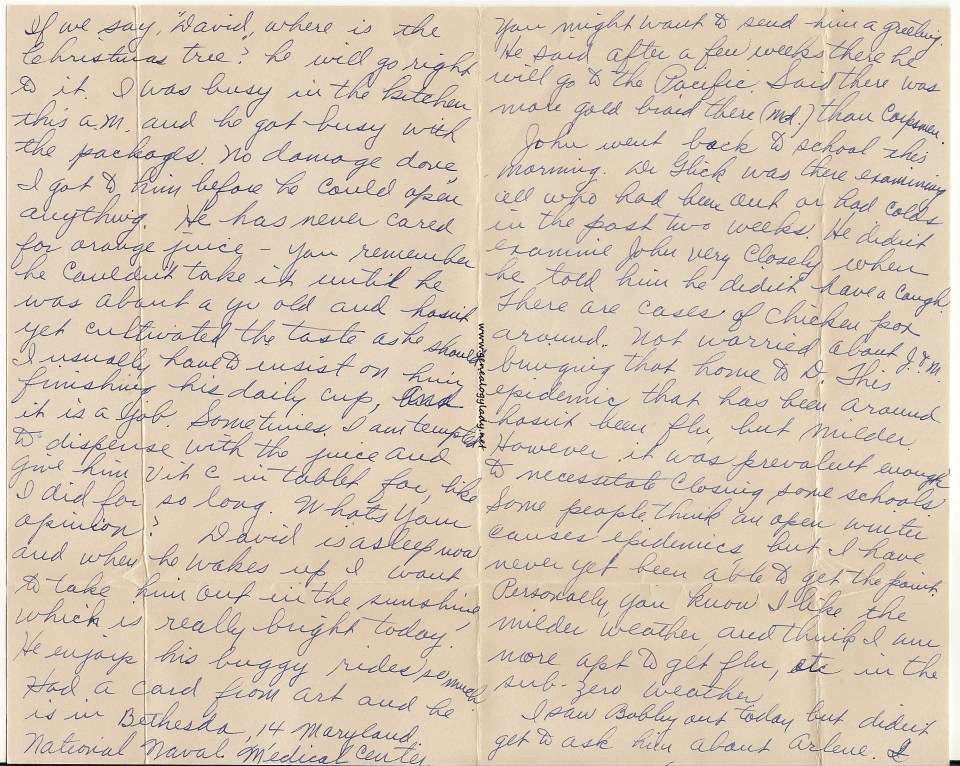 If we say, "David, where is the
Christmas tree? he will go right
to it. I was busy in the kitchen
this a.m. and he got busy with
the packages. No damage done,
I got to him before he could open
anything. He has never cared
for orange juice – you remember
he couldn't take it until he
was about a yr old and hasn't
yet cultivated the taste as he should
I usually have to insist on him
finishing his daily cup, and
it is a job. Sometimes I am tempted
to dispense with the juice and
give him Vit C in tablet for, like
I did for so long. What's your
opinion? David is asleep now
and when he wakes up I want
to take him out in the sunshine,
which is really bright today.
He enjoys his buggy rides so much
Had a card from Art and he
is in Bethesda, 14 Maryland
National Naval Medical Center.
You might want to send him a greeting.
He said after a few weeks there he
will go to the Pacific. Said there was
more gold braid there (Md.) than Corpsmen.
John went back to school this
morning. Dr Glick was there examining
all who had been out or had colds
in the past two weeks. He didn't
examine John very closely when
he told him he didn't have a cough.
There are cases of chicken pox
around. Not worried about J. & M.
bringing that home to D. This
epidemic that has been around
hasn't been flu, but milder.
However it was prevalent enough
to necessitate closing some schools
Some people think an open winter
causes epidemics but I have
never yet been able to get the point.
Personally, you know I like the
milder weather and think I am
more apt to get flu, etc in the
sub-zero weather.
I saw Bobby out today but didn't
get to ask him about Arlene. I
www.genealogylady.net